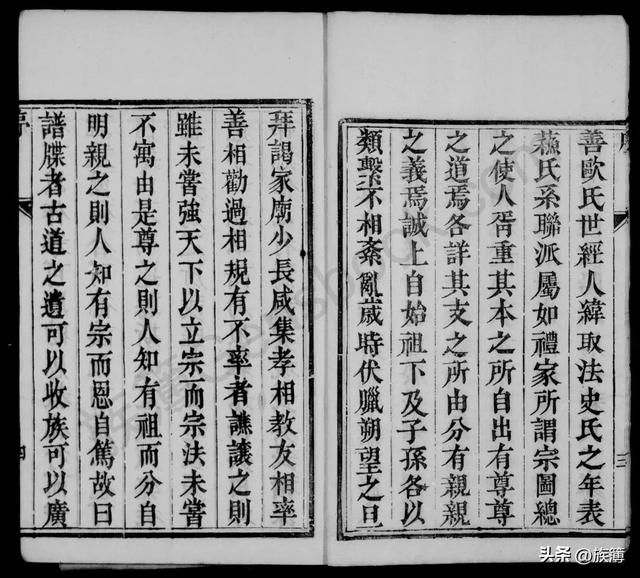 善歐氏世經人緯取法史氏之年表
蘓氏系聯派屬如禮家所謂宗圖總
之使人胥重其本之所自出有尊尊
之道焉各詳其支之所由分有親親
之義焉誠上自始祖下及子孫各以
類繫不相紊亂歲時伏臘朔望之旦
三
拜謁家廟少長咸集孝相教友相率
善相勸過相規有不率者譙讓之則
雖未嘗強天下以立宗而宗法未嘗
不寓由是尊之則人知有祖而分自
明親之則人知有宗而恩自篤故曰
譜牒者古道之遺可以收族可以廣
四
头条 @族簿